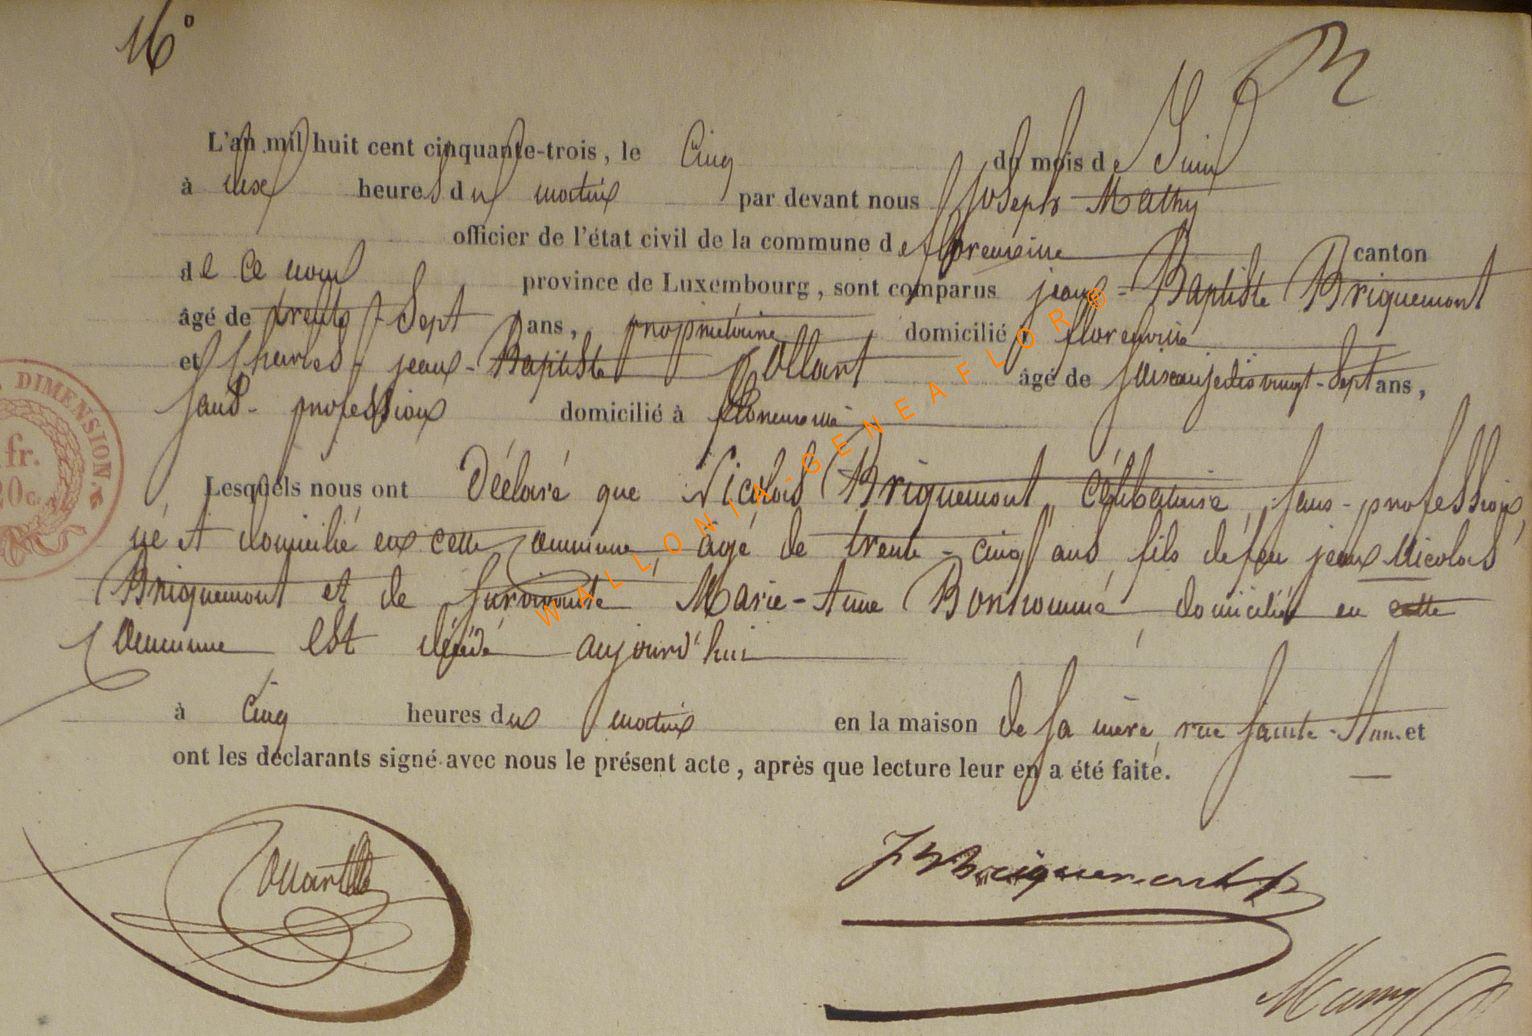 16°
L'an mil huit cent cinquante-trois, le Cinq du mois de Juin
à dix heures du matin par devant nous Joseph Mathy
officier de l'état civil de la commune de florenville canton
de ce nom province de Luxembourg, sont comparus jean-Baptiste Briquemont
âgé de trente-Sept ans, propriétaire domicilié à florenville
et Charles-jean-Baptiste Collart âgé de soixante dix-Sept ans,
sans-profession domicilié à florenville
Lesquels nous ont Déclaré que Nicolas Briquemont, célibataire, sans-profession,
né et domicilié en cette Commune, agé de trente-cinq ans, fils de feu jean Nicolas
Briquemont et de survivante Marie-Anne Bonhomme, domiciliée en cette
Commune est décédé aujourd'hui
à Cinq heures du matin en la maison de sa mère, rue sainte-Ann. et
ont les déclarants signé avec nous le présent acte, après que lecture leur en a été faite.
Collart
JB Briquemont
DIMENSION.
fr.
20c.
WALLONIA-GENEAFLORE